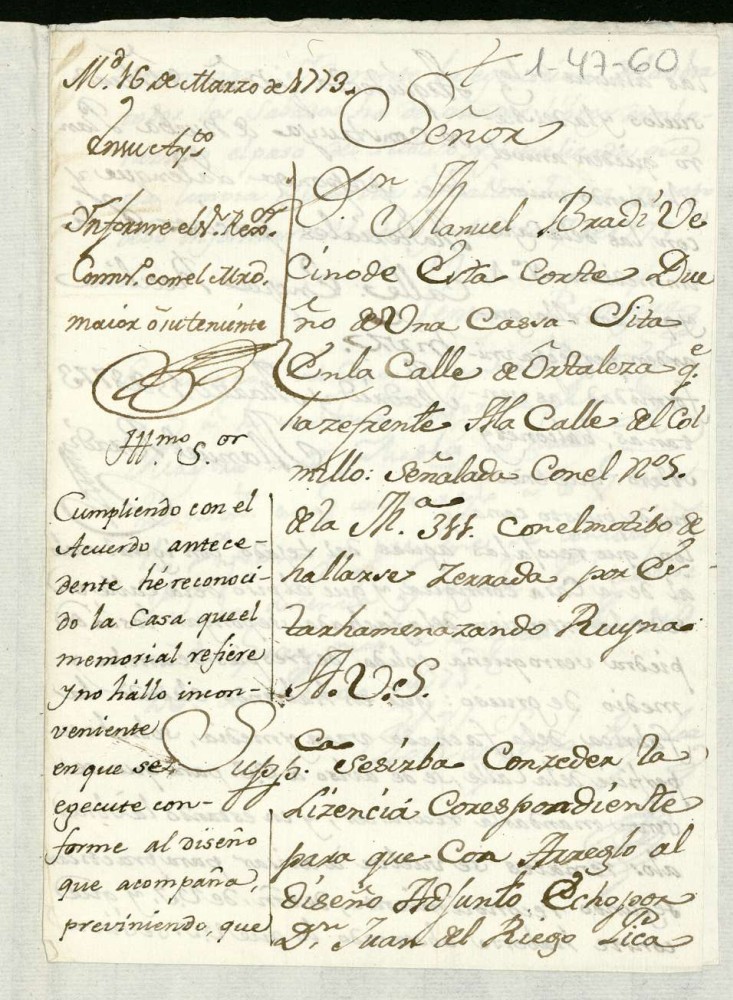 1-47-60
M.d 16 de Marzo de 1773.
En su Ay.to
Informe el S.r Rexor
Comis.o con el Mro.
maior ó su teniente
Yll.mo S.or
Cumpliendo con el
Acuerdo antece-
dente hé reconoci-
do la Casa que el
memorial refiere
y no hállo incon-
veniente
en que se
egecute con-
forme al diseño
que acompaña,
previniendo, que
Señor
D.n Manuel Bradi Ve
Cino de Esta Corte Due
ño de Una Cassa Sita
En la Calle de Ortaleza q.e
haze frente Ala Calle del Col
millo: Señalada Con el N.o 5.
de la M.a 344. con el motibo de
hallarse Zerrada por Es
tarhamenazando Ruyna
A. V. S.
Supp.ca se sirba Conzeder la
Lizencia Corespondiente
para que Con Arreglo al
diseño Adjunto Echo por
D.n Juan del Riego Pica